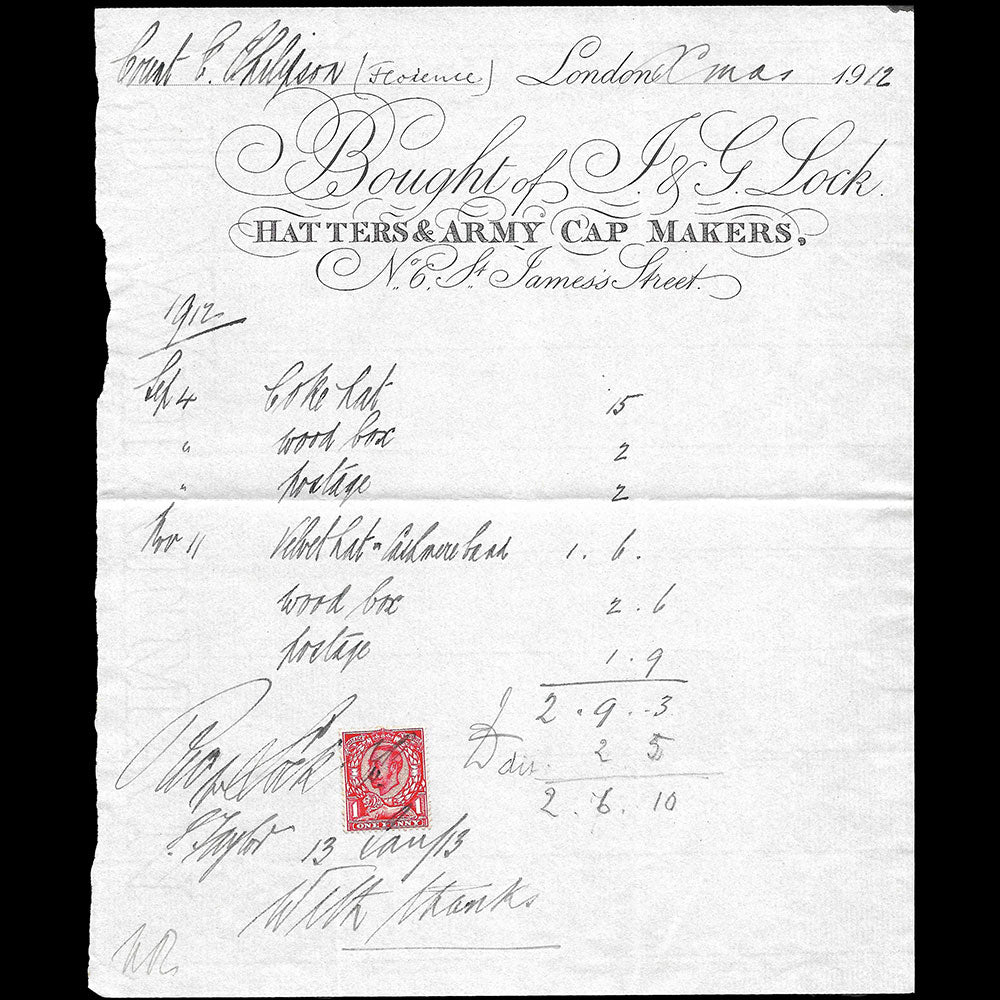 Count E. Philipson (Florence) London Xmas 1912
Bought of J. & G. Lock.
HATTERS & ARMY CAP MAKERS,
No. 6. St. James's Street.
1912
Sep 4 Coke hat 15
" wood box 2
" postage 2
Nov 11 Velvet hat " Cashmere band 1. 6.
wood box 2. 6
postage 1. 9
£ 2. 9. 3
D dis. 2 5
2. 6. 10
Lock
ONE PENNY
J. Taylor 13 Jany/13
With thanks